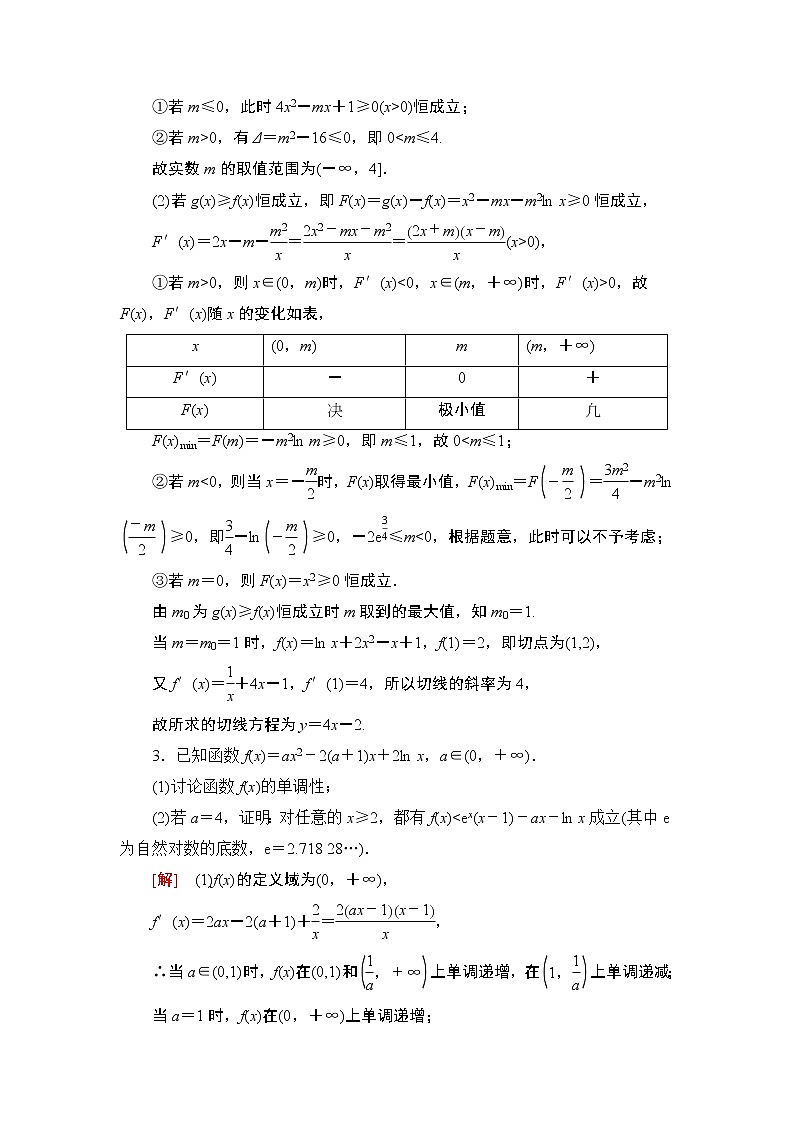 ①若 m≤0，此时 4x²－mx＋1≥0(x>0)恒成立；
②若 m>0，有 Δ＝m²－16≤0，即 0<m≤4.
故实数 m 的取值范围为(－∞，4]．
(2)若 g(x)≥f(x)恒成立，即 F(x)＝g(x)－f(x)＝x²－mx－m²ln x≥0 恒成立，
F′(x)＝2x－m－m²/x＝(2x²－mx－m²)/x＝(2x＋m)(x－m)/x(x>0)，
①若 m>0，则 x∈(0，m)时，F′(x)<0，x∈(m，＋∞)时，F′(x)>0，故
F(x)，F′(x)随 x 的变化如表，
x (0，m) m (m，＋∞)
F′(x) － 0 ＋
F(x) 决 极小值 凢
F(x)min＝F(m)＝－m²ln m≥0，即 m≤1，故 0<m≤1；
②若 m<0，则当 x＝－m/2时，F(x)取得最小值，F(x)min＝F(－m/2)＝3m²/4－m²ln
(－m/2)≥0，即3/4－ln(－m/2)≥0，－2e^(3/4)≤m<0，根据题意，此时可以不予考虑；
③若 m＝0，则 F(x)＝x²≥0 恒成立．
由 m₀ 为 g(x)≥f(x)恒成立时 m 取到的最大值，知 m₀＝1.
当 m＝m₀＝1 时，f(x)＝ln x＋2x²－x＋1，f(1)＝2，即切点为(1,2)，
又 f′(x)＝1/x＋4x－1，f′(1)＝4，所以切线的斜率为 4，
故所求的切线方程为 y＝4x－2.
3．已知函数 f(x)＝ax²－2(a＋1)x＋2ln x，a∈(0，＋∞)．
(1)讨论函数 f(x)的单调性；
(2)若 a＝4，证明：对任意的 x≥2，都有 f(x)<eˣ(x－1)－ax－ln x 成立(其中 e
为自然对数的底数，e＝2.718 28…)．
[解] (1)f(x)的定义域为(0，＋∞)，
f′(x)＝2ax－2(a＋1)＋2/x＝2(ax－1)(x－1)/x，
∴当 a∈(0,1)时，f(x)在(0,1)和(1/a，＋∞)上单调递增，在(1，1/a)上单调递减；
当 a＝1 时，f(x)在(0，＋∞)上单调递增；